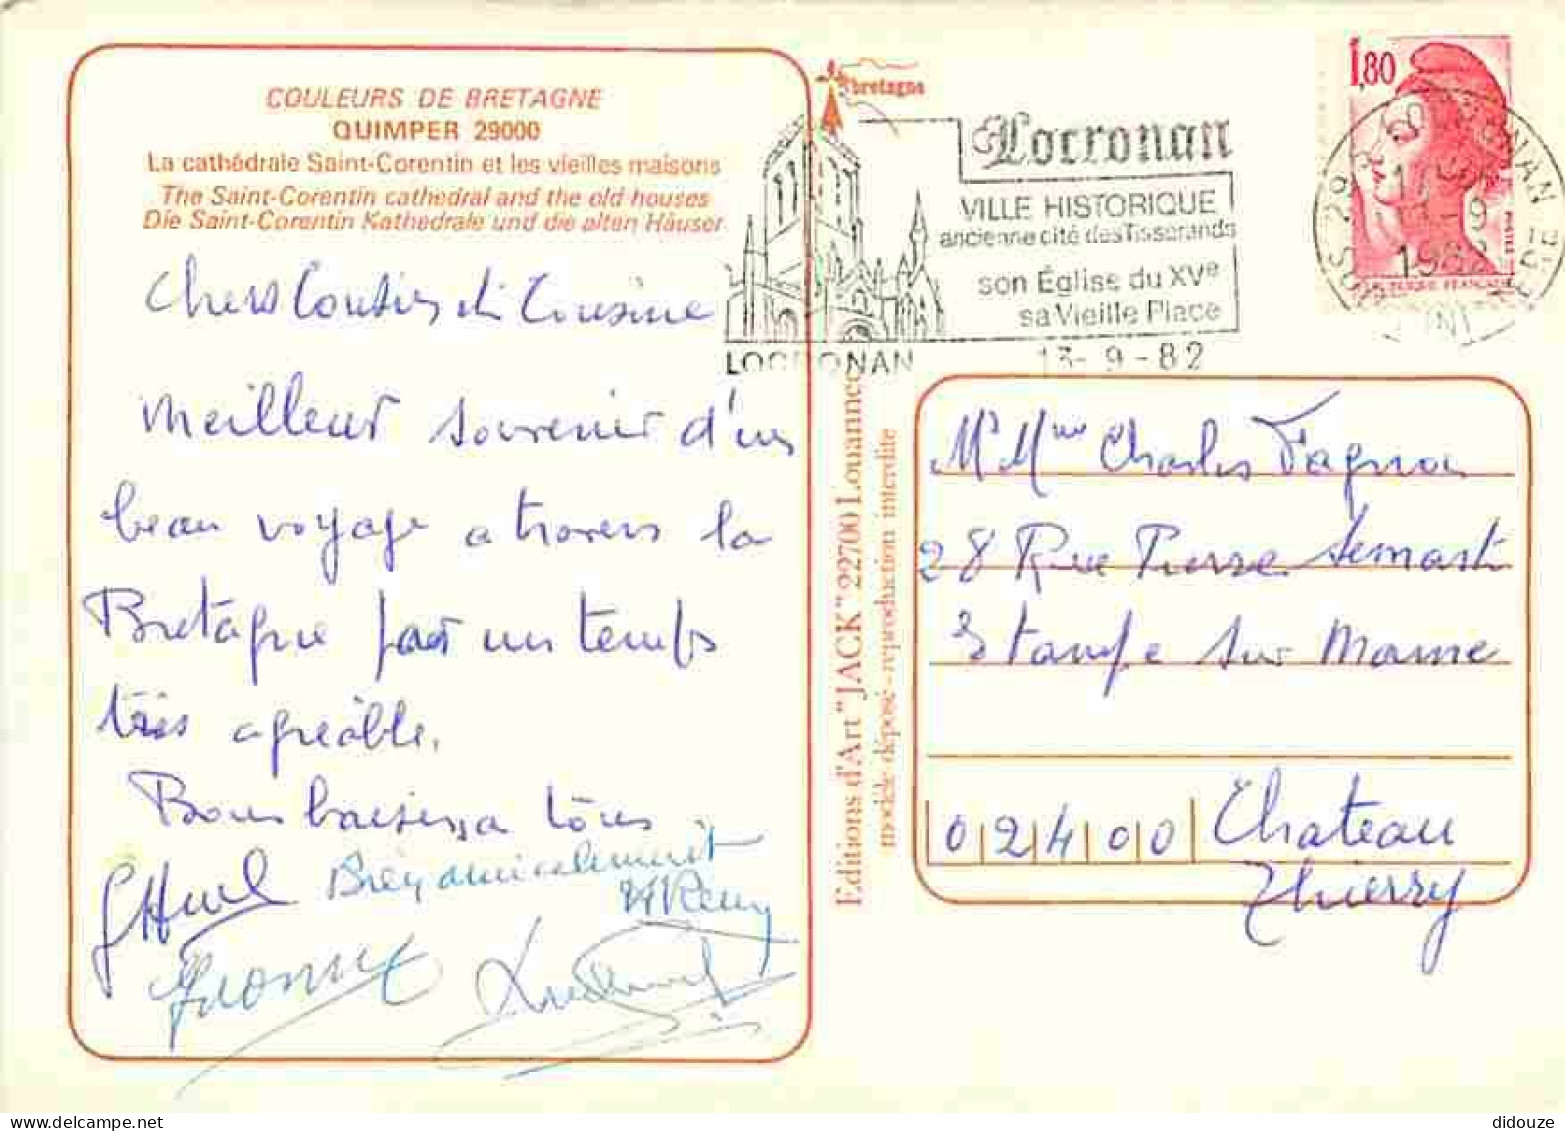 COULEURS DE BRETAGNE
QUIMPER 29000
La cathédrale Saint-Corentin et les vieilles maisons
The Saint-Corentin cathedral and the old houses
Die Saint-Corentin Kathedrale und die alten Häuser
Chers Cousins et Cousine
Meilleur souvenir d'un
beau voyage a travers la
Bretagne par un temps
très agréable.
Bons baisers a tous
Bien amicalement
Yvonne
bretagne
Locronan
VILLE HISTORIQUE
ancienne cité des Tisserands
son Église du XVe
sa Vieille Place
LOCRONAN
13-9-82
1,80
1982
Editions d'Art "JACK" 22700 Louannec
modèle déposé - reproduction interdite
Mr Mme Charles
28 Rue Pierre Semard
Etampe sur Marne
02400 Chateau
Thierry
didouze